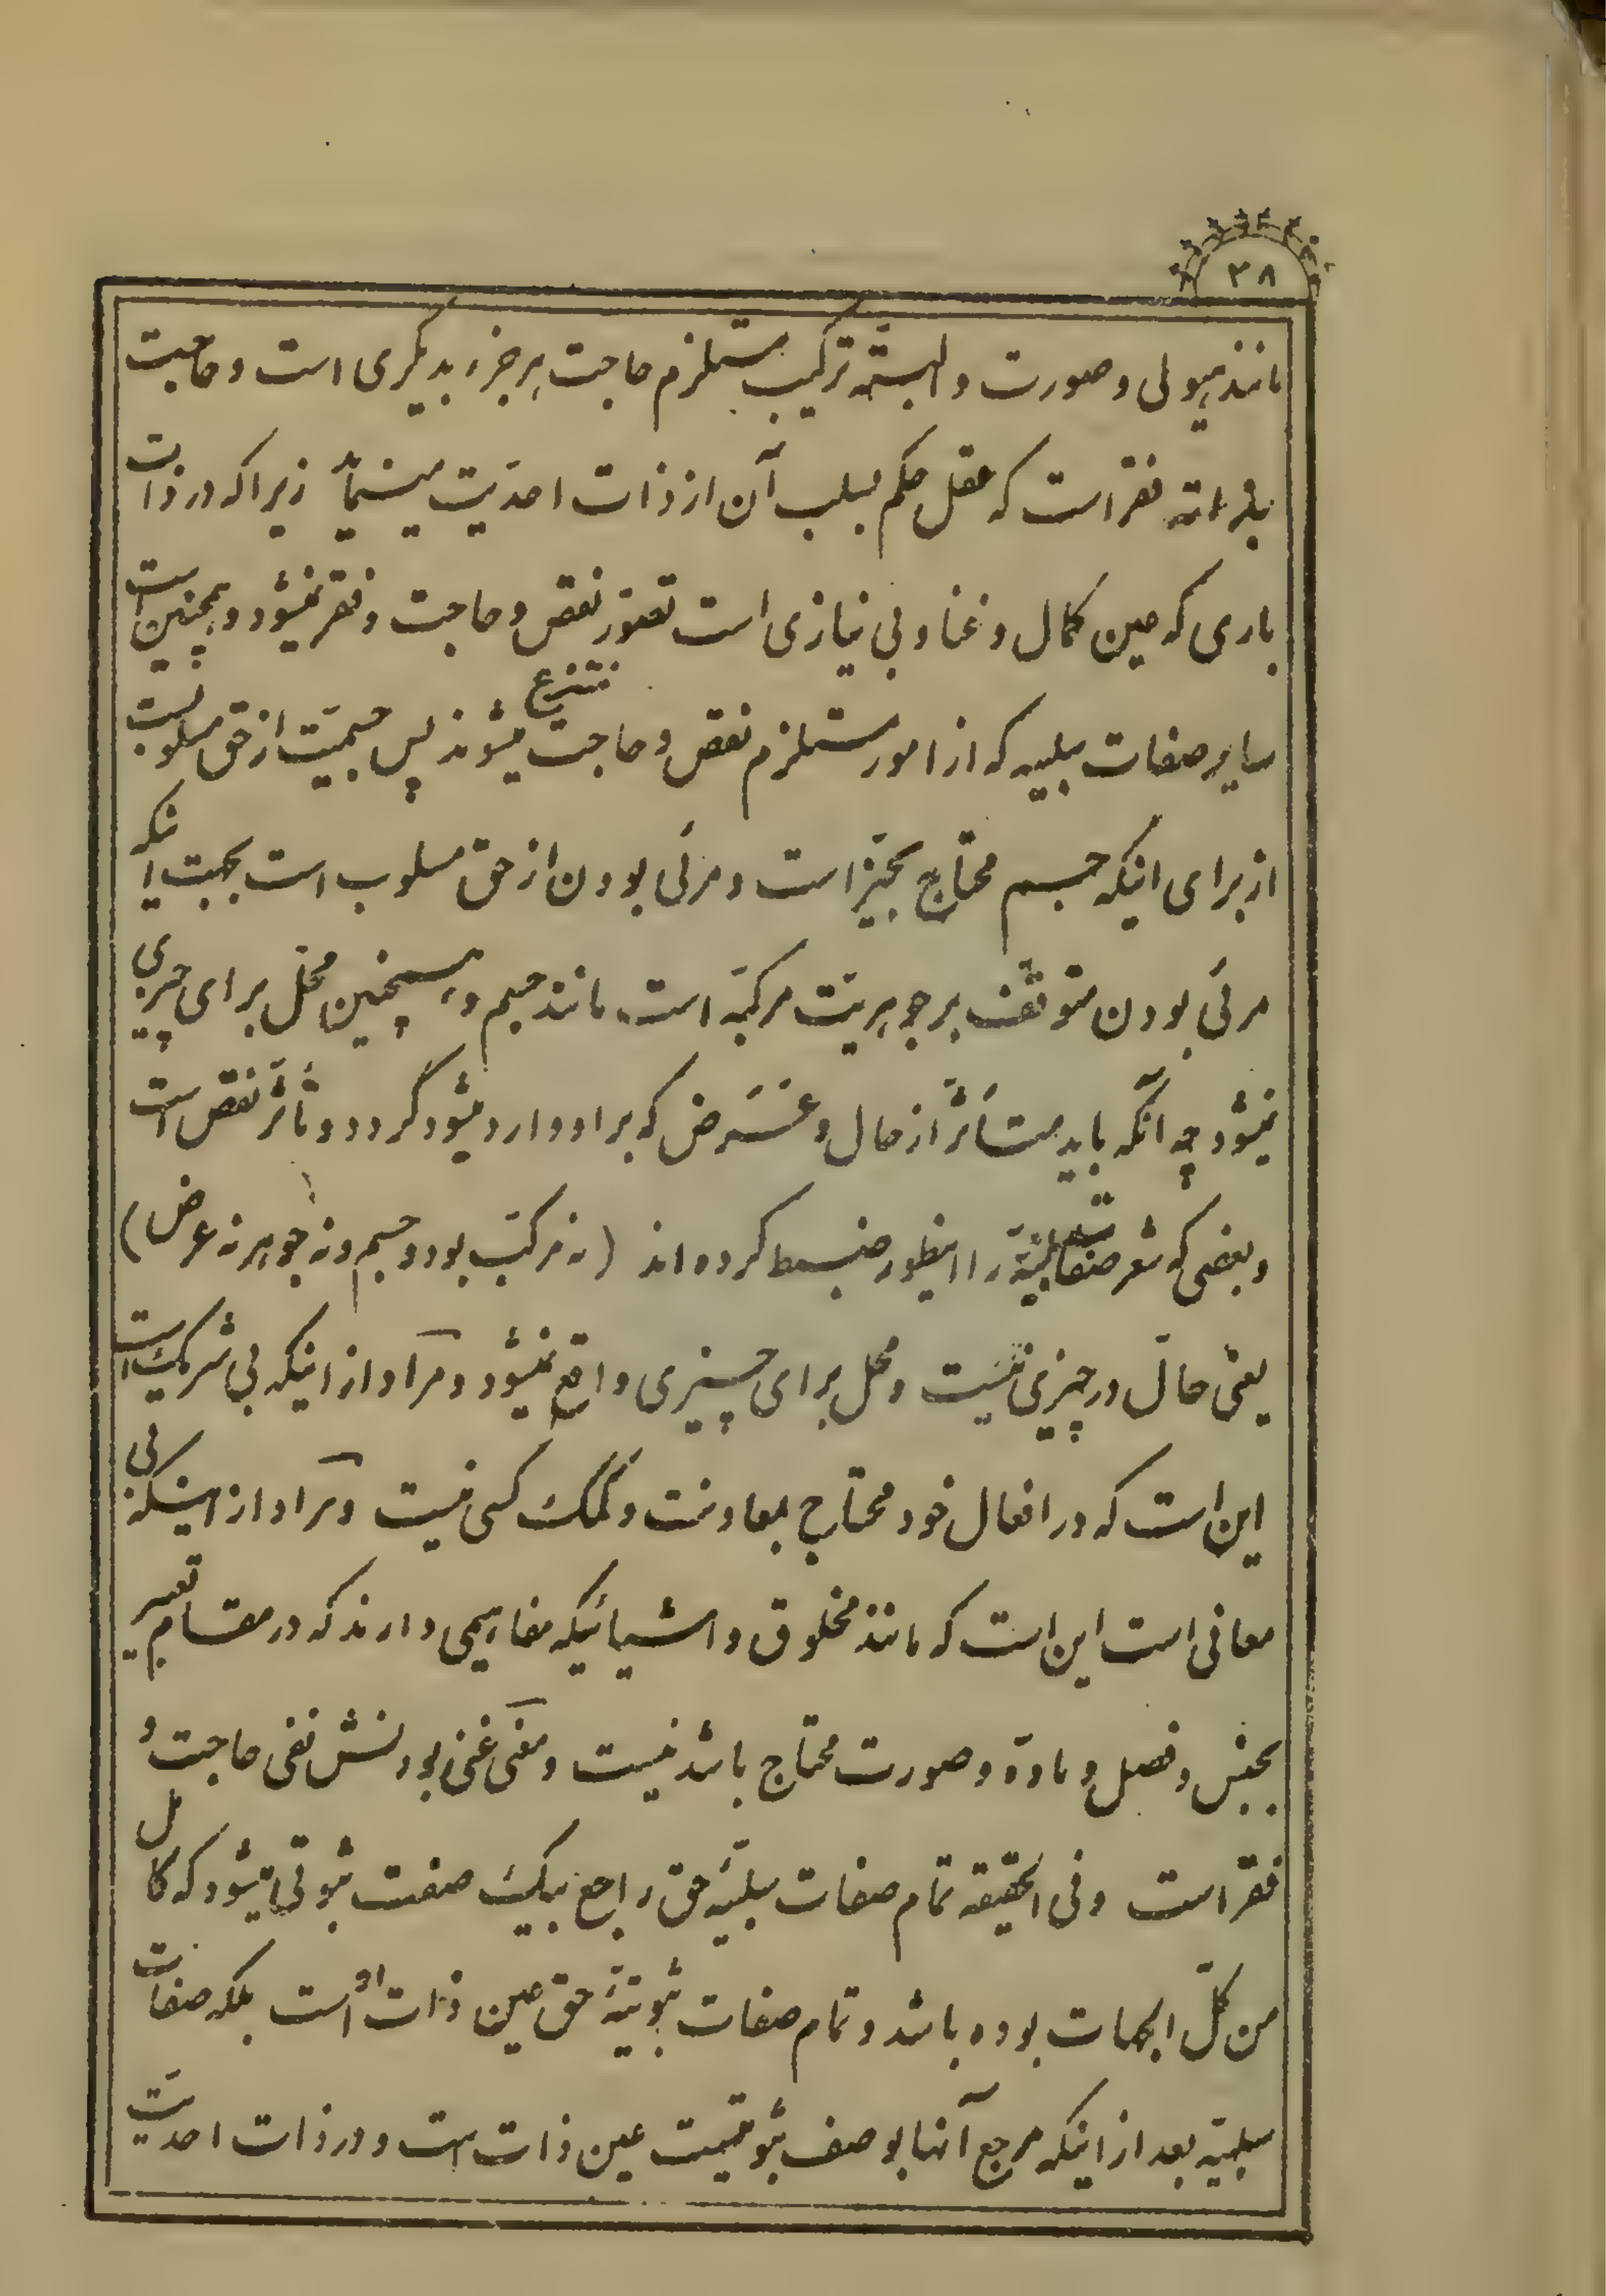 ۳۸
مانند هیولی و صورت و البته ترکیب مستلزم حاجت هر جزء بدیگری است و حاجت
بغیر البته فقر است که عقل حکم بسلب آن از ذات احدیت مینماید زیرا که در ذات
باری که عین کمال و غنا و بی نیازی است تصور نقص و حاجت و فقر نمیشود و همچنین است
سایر صفات سلبیه که از امور مستلزم نقص و حاجت منتزع میشوند پس جسمیت از حق مسلوبست
از برای اینکه جسم محتاج بحیّز است و مرئی بودن از حق مسلوب است بجهت اینکه
مرئی بودن متوقف بر جوهریت مرکبه است مانند جسم و همچنین محل برای چیزی
نمیشود چه آنکه باید متأثر از حال و عَرَض که بر او وارد میشود گردد و تأثّر نقص است
و بعضی که شعر صفات سلبیّه را اینطور ضبط کرده اند (نه مرکب بود و جسم و نه جوهر نه عرض)
یعنی حالّ در چیزی نیست و محل برای چیزی واقع نمیشود و مراد از اینکه بی شریک است
این است که در افعال خود محتاج بمعاونت و کمک کسی نیست و مراد از اینکه بی
معانی است این است که مانند مخلوق و اشیائیکه مفاهیمی دارند که در مقام تعبیر
بجنس و فصل و مادّه و صورت محتاج باشد نیست و معنی غنی بودنش نفی حاجت و
فقر است و فی الحقیقه تمام صفات سلبیّهٔ حق راجع بیک صفت ثبوتی میشود که کامل
من کلّ الجهات بوده باشد و تمام صفات ثبوتیّهٔ حق عین ذات او است بلکه صفات
سلبیّه بعد از اینکه مرجع آنها بوصف ثبوتیست عین ذات است و در ذات احدیّت